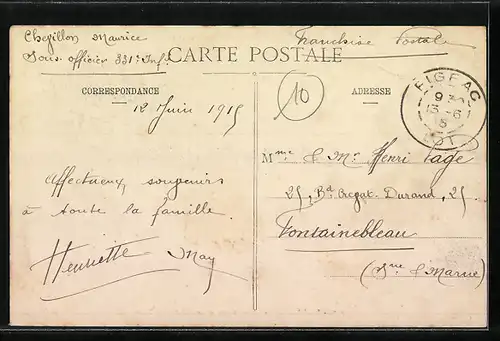 Maurice
Sous-officier 331e Inf.
Franchise Postale
CARTE POSTALE
CORRESPONDANCE
ADRESSE
10
FIGEAC
9 30
13 -6
15
LOT
12 Juin 1915
Affectueux souvenirs
à toute la famille.
Henriette May
Mme & Mr Henri
25, Bd Durand, 25
Fontainebleau
(Sne & Marne)